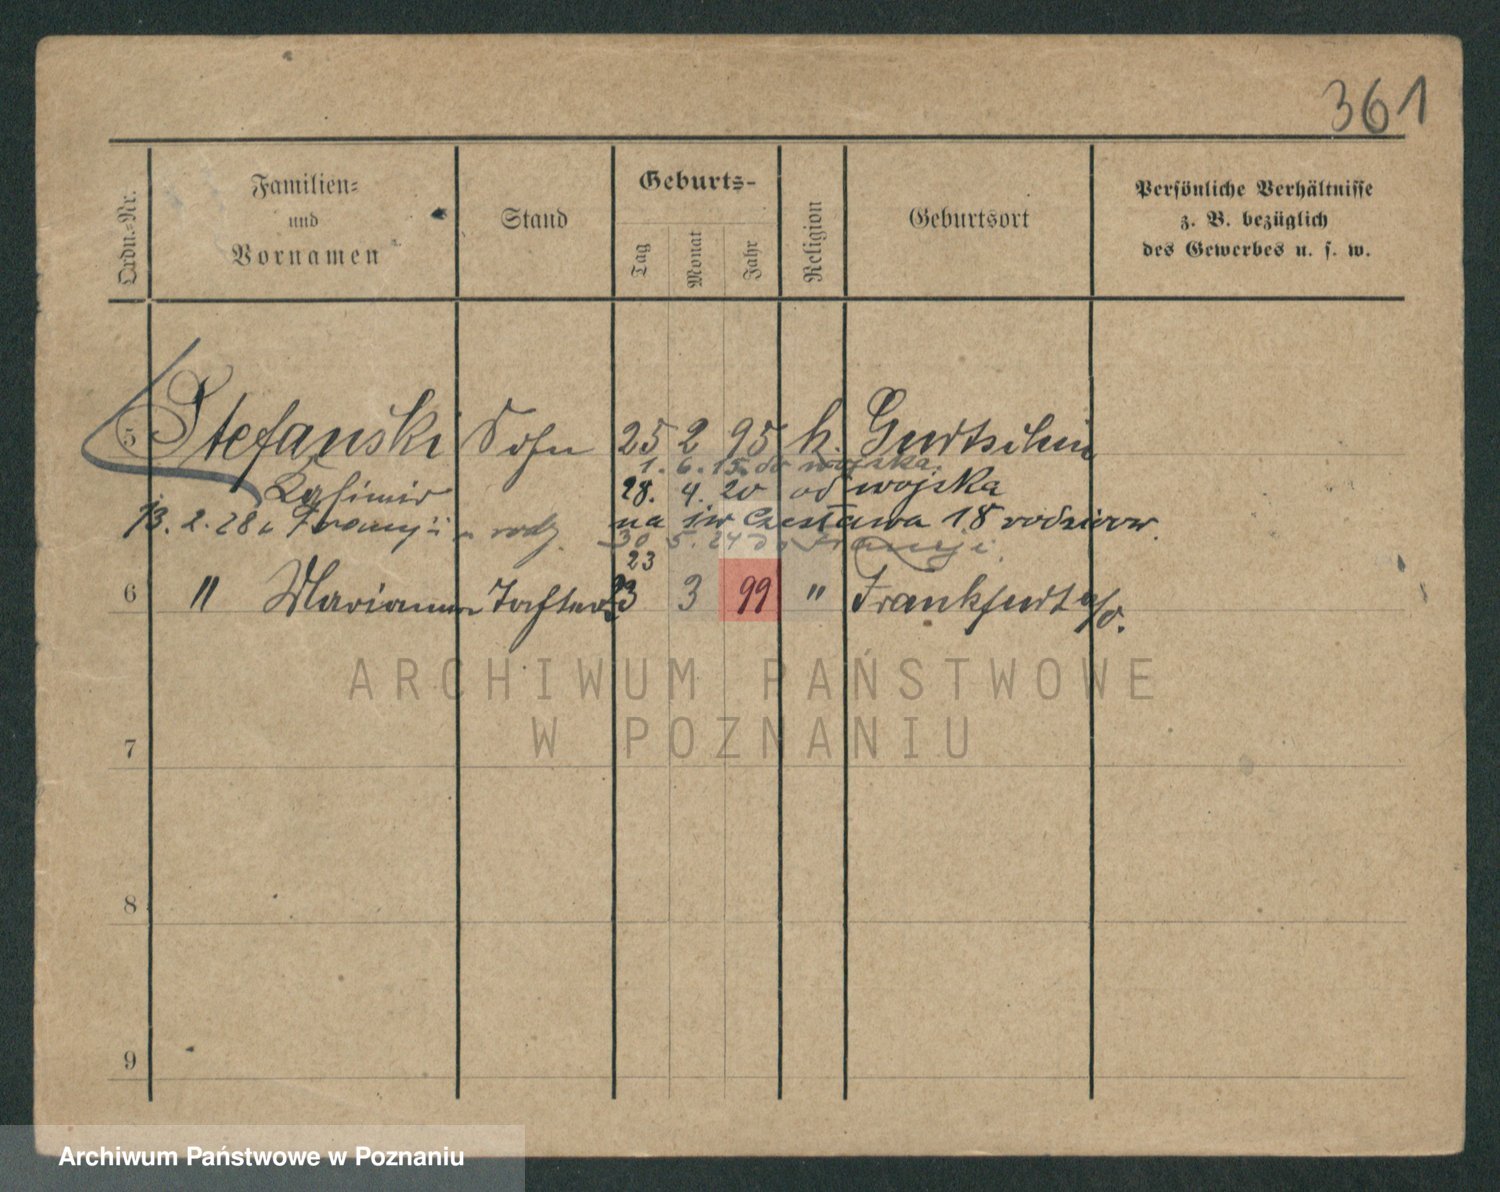 361
Ordn.-Nr.
Familien-
und
Vornamen
Stand
Geburts-
Tag
Monat
Jahr
Religion
Geburtsort
Persönliche Verhältnisse
z. B. bezüglich
des Gewerbes u. s. w.
5 Stefanski Sohn 25 2 95 k. Gurtschin
1. 6. 15. do wojska
Kasimir 28. 4. 20 od wojska
13. 2. 28 z Francji u rodz. na św Czesława 18 rodziców.
30 5. 24 do Francji.
23
6 " Marianna Tochter 23 3 99 " Frankfurt a/O.
7
8
9
ARCHIWUM PAŃSTWOWE
W POZNANIU
Archiwum Państwowe w Poznaniu